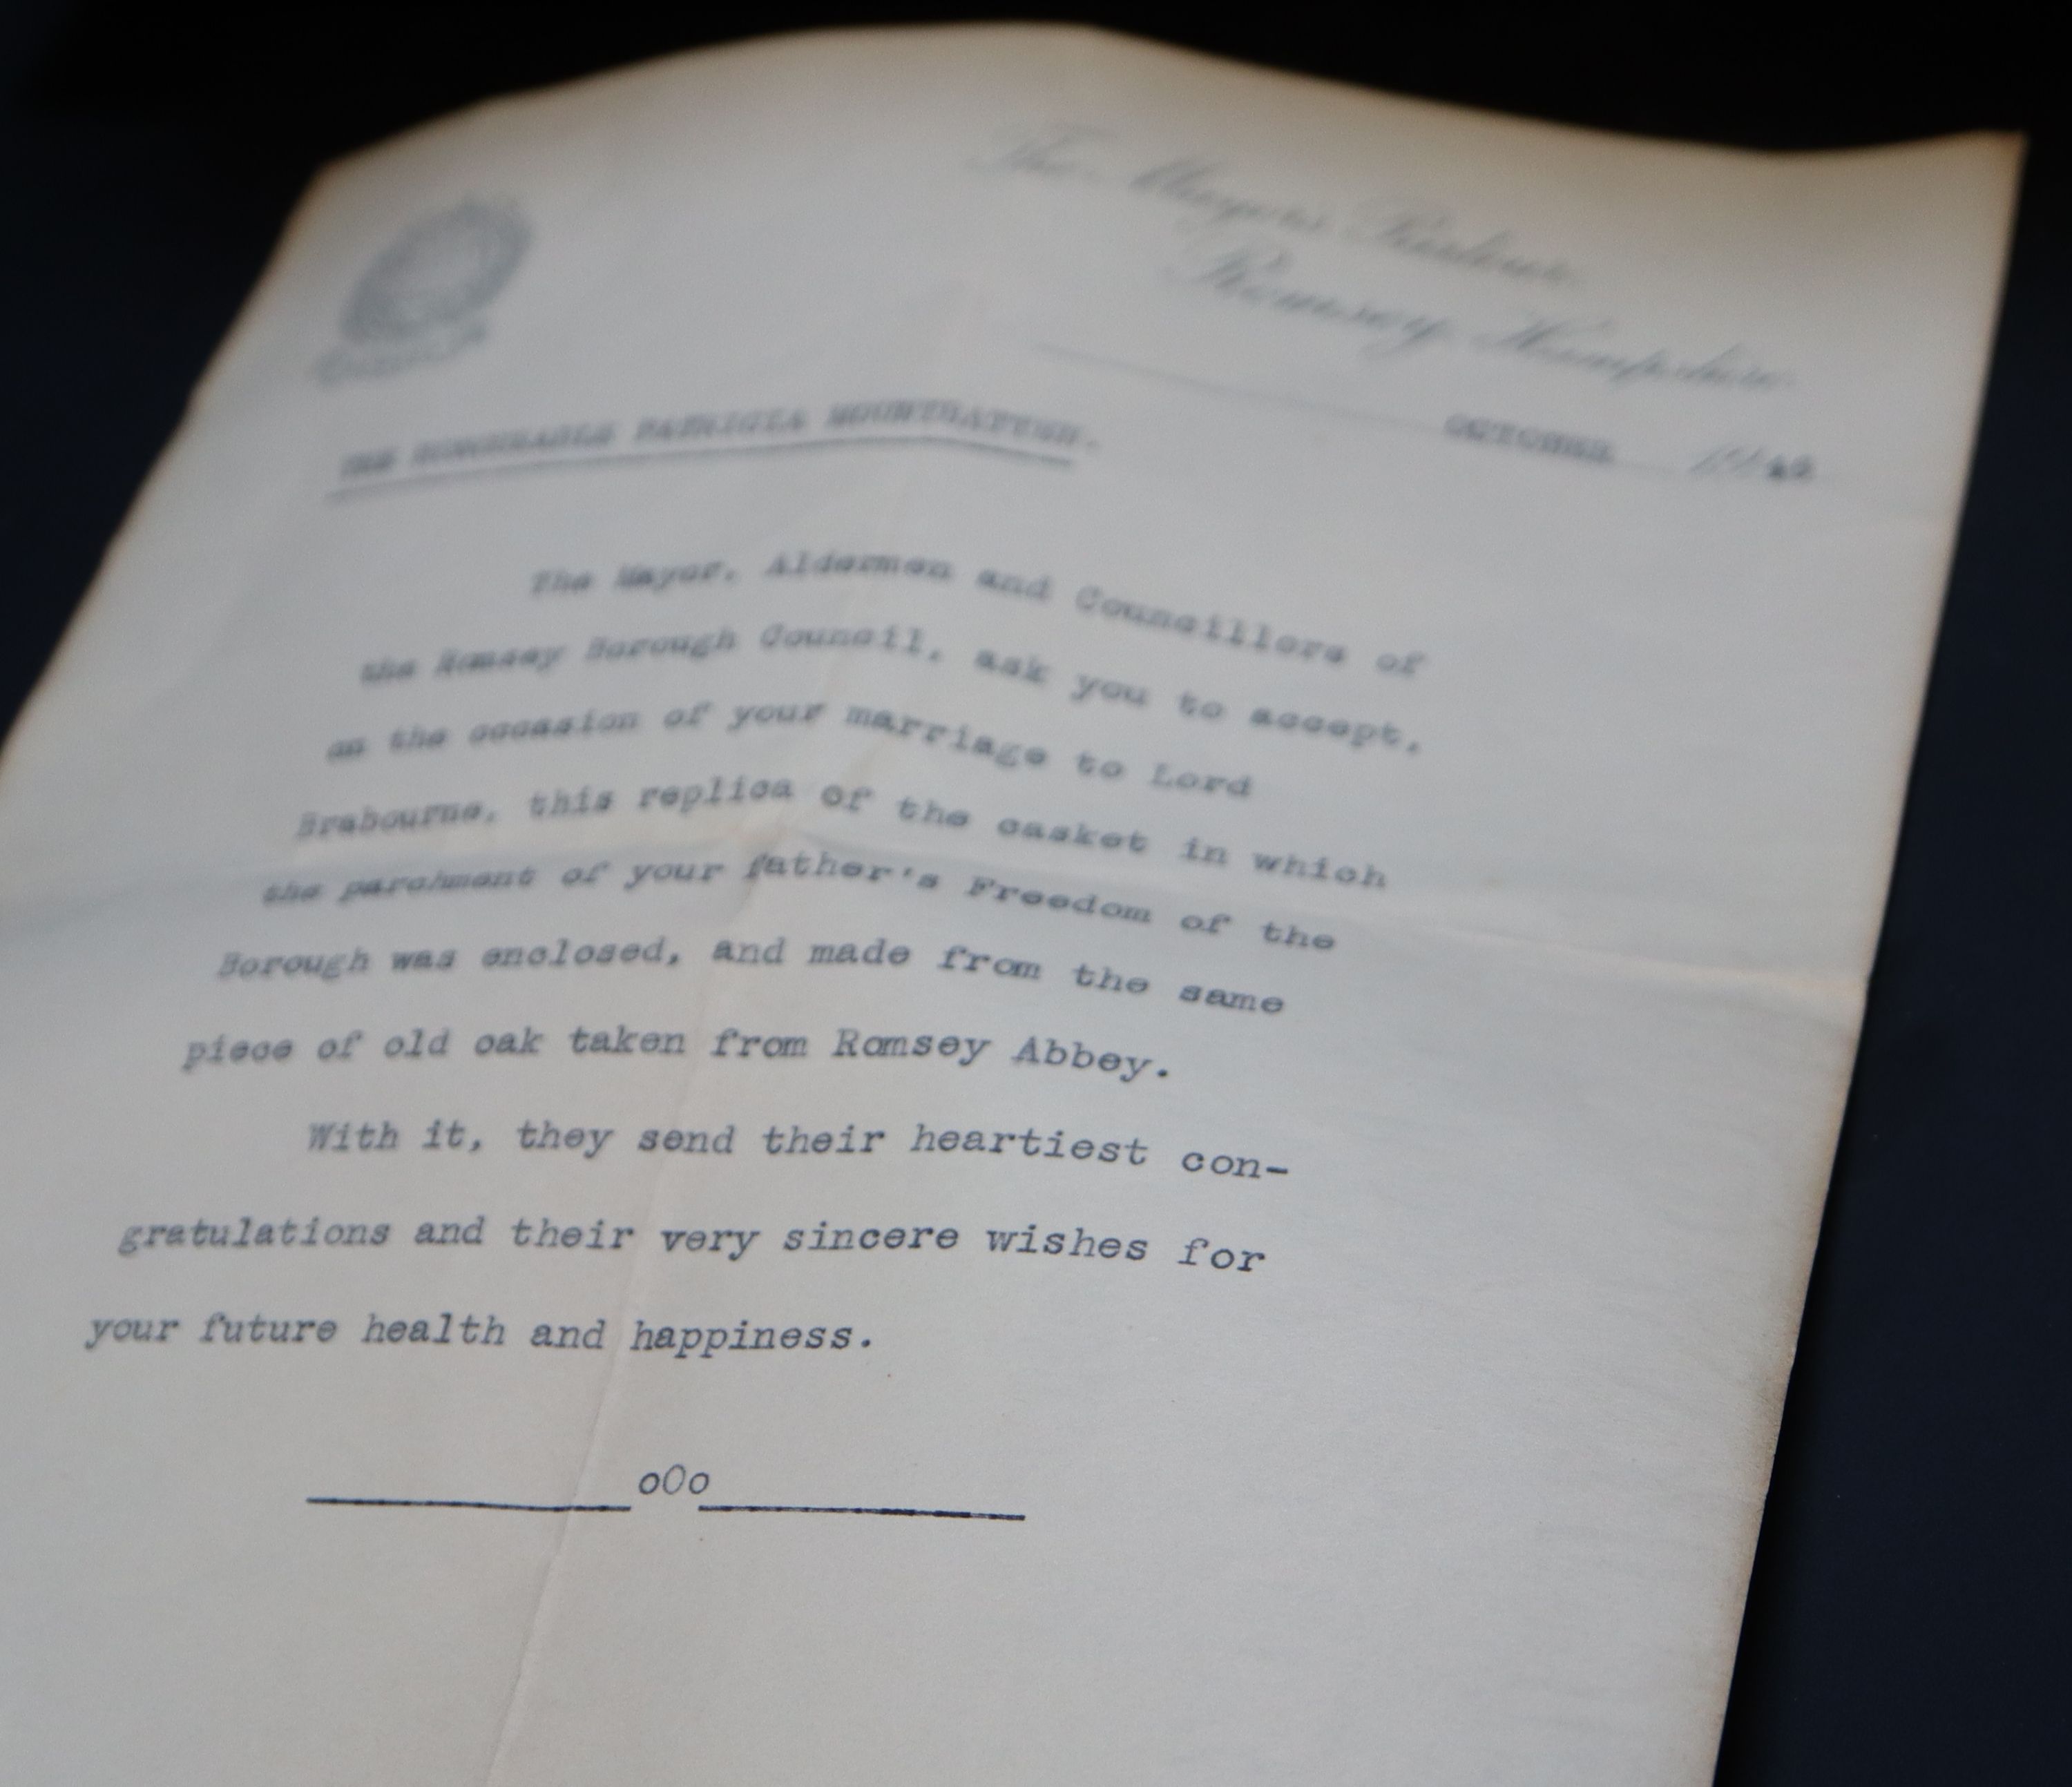 The Mayor's Parlour
Romsey, Hampshire
OCTOBER 1946
THE HONOURABLE PATRICIA MOUNTBATTEN.
The Mayor, Aldermen and Councillors of
the Romsey Borough Council, ask you to accept,
on the occasion of your marriage to Lord
Brabourne, this replica of the casket in which
the parchment of your father's Freedom of the
Borough was enclosed, and made from the same
piece of old oak taken from Romsey Abbey.
With it, they send their heartiest con-
gratulations and their very sincere wishes for
your future health and happiness.
oOo